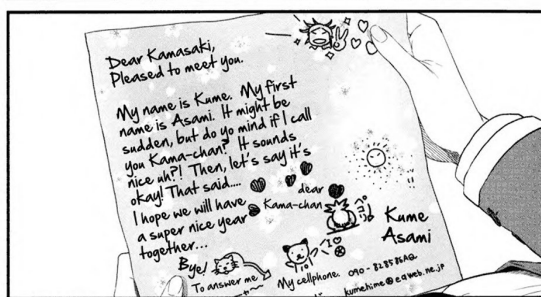 Dear Kamasaki,
Pleased to meet you.
My name is Kume. My first
name is Asami. It might be
sudden, but do yo mind if I call
you Kama-chan? It sounds
nice uh?! Then, let's say it's
okay! That said....
I hope we will have
a super nice year
together...
dear
Kama-chan
Kume
Asami
Bye!
To answer me
I
My cellphone.
090-
kumehime@eqweb.ne.jp